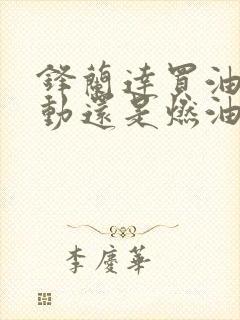 鋒蘭達買油
動還是燃油
李慶華